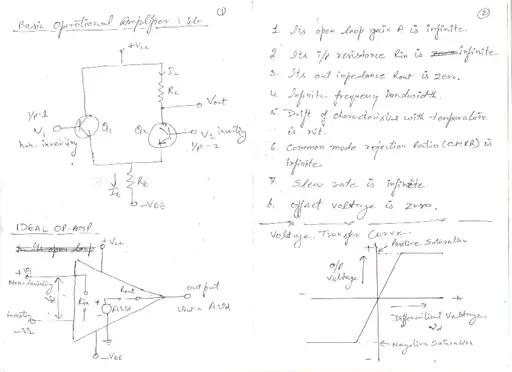 ①
Basic Operational Amplifier
+Vcc
IL
RL
Vout
i/p-1
V1
Q1
Q2
V2 inverting
i/p-2
non-inverting
IE
RE
-VEE
IDEAL OP-AMP
+Vcc
+V1
Non-inverting
Vd
Rin
Rout
AVd
output
Vout = AVd
inverting
-V2
-VEE
②
1. Its open loop gain A is infinite.
2. Its i/p resistance Rin is infinite
3. Its out impedance Rout is zero.
4. Infinite frequency bandwidth.
5. Drift of characteristics with temperature
is nil.
6. Common mode rejection Ratio (CMRR) is
infinite
7. Slew rate is infinite
8. offset voltage is zero.
Voltage Transfer Curve
Positive Saturation
o/p
voltage
+
-
Differential Voltage
Vd
Negative Saturation
-